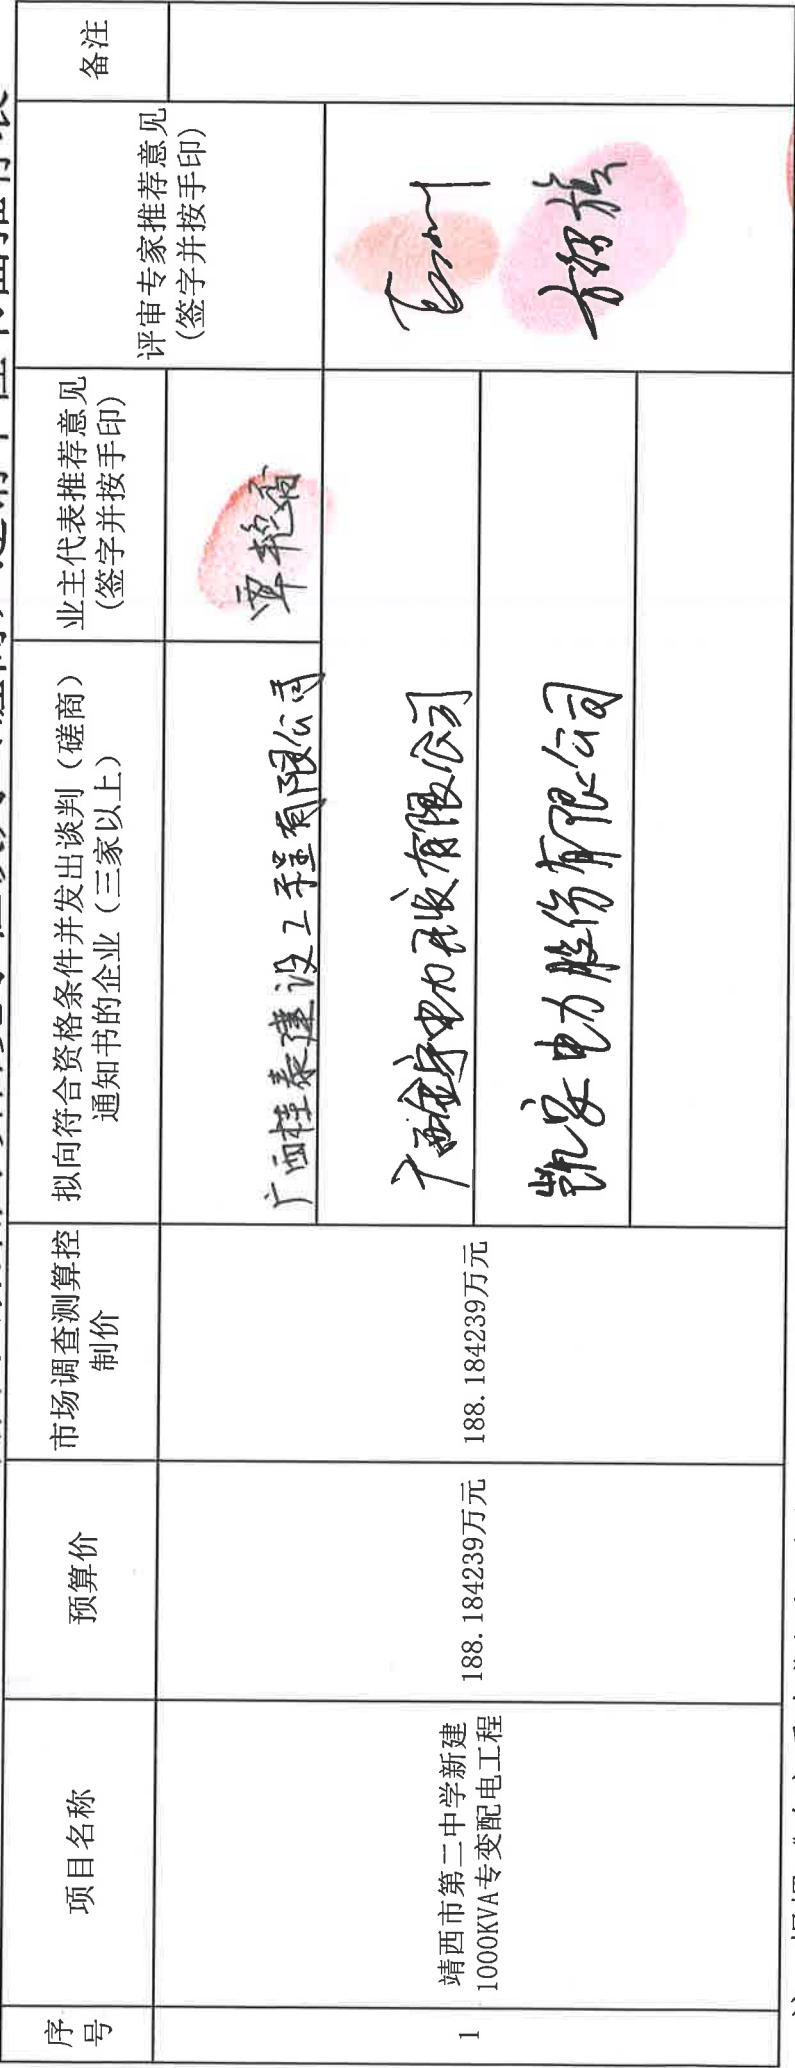 序
号
项目名称
预算价
市场调查测算控
制价
拟向符合资格条件并发出谈判（磋商）
通知书的企业（三家以上）
业主代表推荐意见
（签字并按手印）
评审专家推荐意见
（签字并按手印）
备注
1
靖西市第二中学新建
1000KVA专变配电工程
188.184239万元
188.184239万元
广西桂泰建设工程有限公司
广西金宇电力开发有限公司
凯安电力股份有限公司